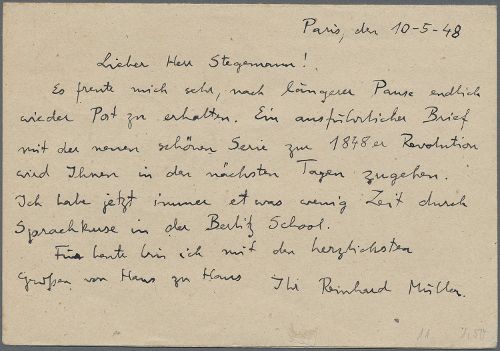 Paris, den 10-5-48
Lieber Herr Stegemann!
Es freute mich sehr, nach längerer Pause endlich
wieder Post zu erhalten. Ein ausführlicher Brief
mit der neuen schönen Serie zur 1848er Revolution
wird Ihnen in den nächsten Tagen zugehen.
Ich habe jetzt immer etwas wenig Zeit durch
Sprachkurse in der Berlitz School.
Für heute bin ich mit den herzlichsten
Grüßen von Haus zu Haus Ihr Reinhard Müller.
11 7,50